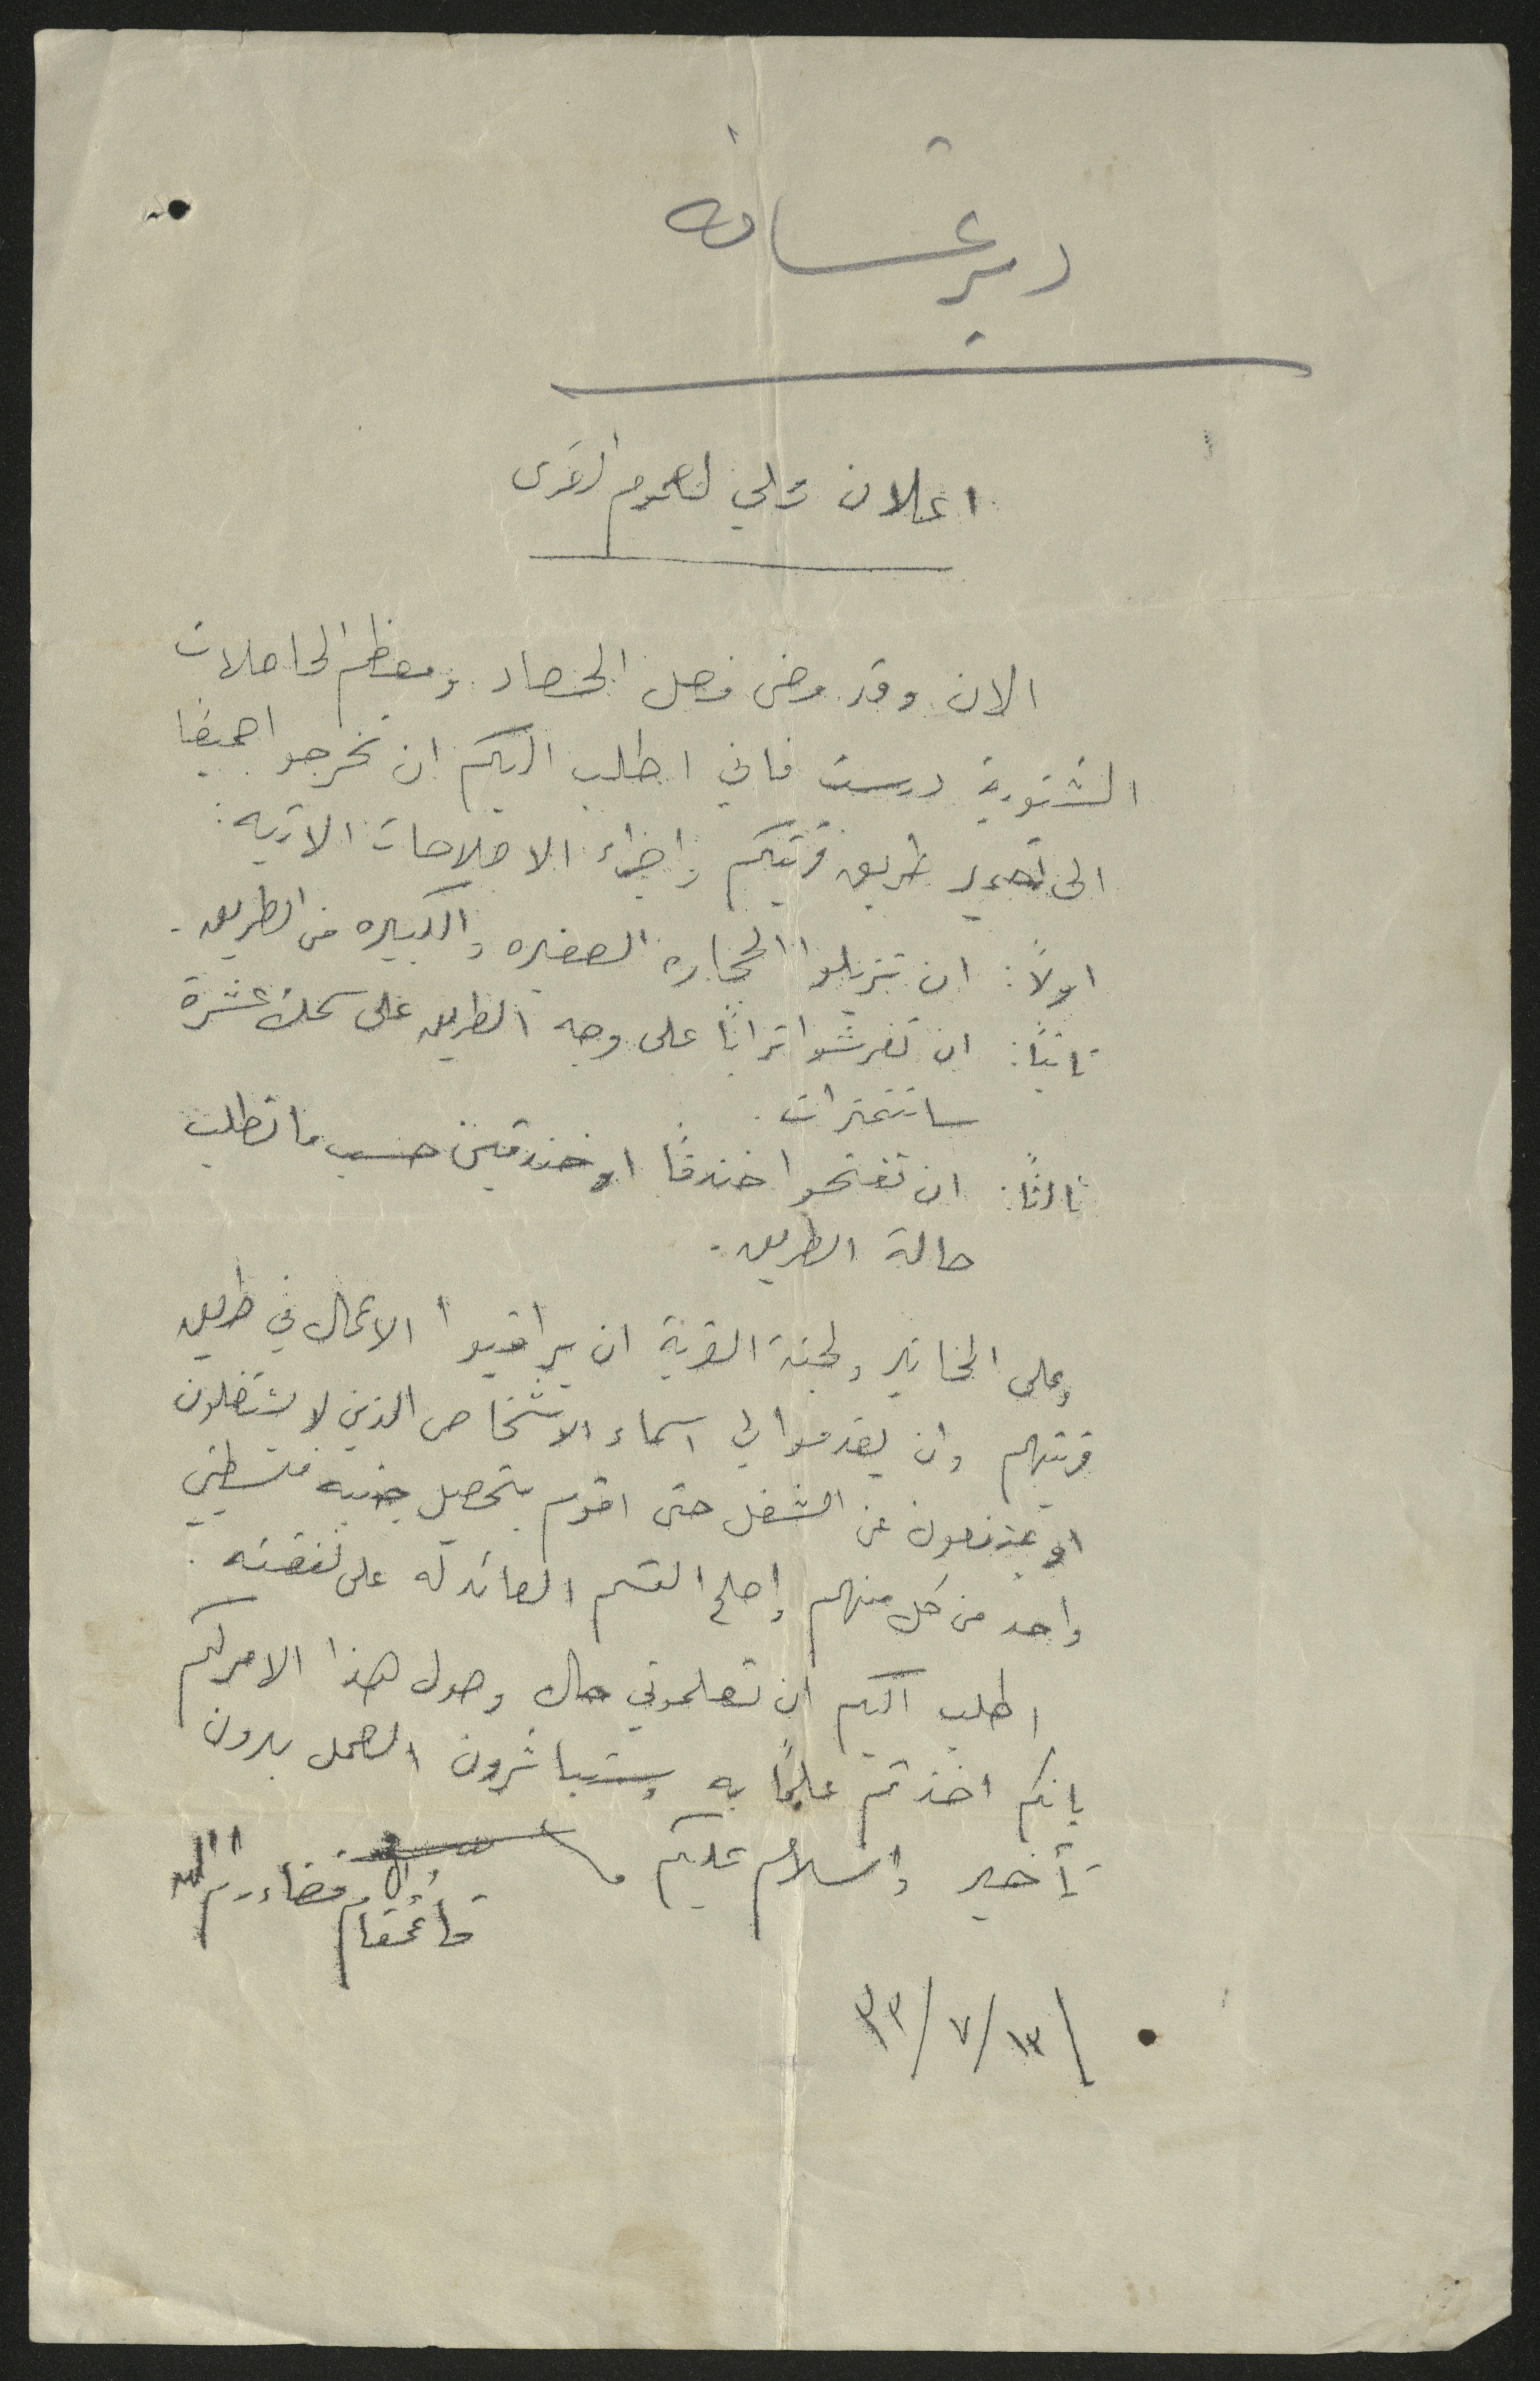 دير غسانه
اعلان محلي لعموم القرى
الان وقد مضى فصل الحصاد ومعظم الحاصلات
الشتوية درست فاني اطلب اليكم ان تخرجوا جميعًا
الى تعمير طريق قريتكم واجراء الاصلاحات الاتيه:
اولاً: ان تزيلوا الحجاره الصغيره والكبيره من الطريق.
ثانيًا: ان تفرشوا ترابًا على وجه الطريق على سمك عشرة
سانتمترات.
ثالثًا: ان تفتحوا خندقًا او خندقين حسب ما تطلب
حالة الطريق.
وعلى المخاتير ولجنة القرية ان يراقبوا الاعمال في طريق
قريتهم وان يقدموا لي اسماء الاشخاص الذين لا يشتغلون
او يمتنعون عن الشغل حتى اقوم بتحصيل جنيه فلسطيني
واحد من كل منهم واصلح القسم العائد له على نفقته.
اطلب اليكم ان تعلموني حال وصول هذا الامر لكم
بانكم اخذتم علمًا به وستباشرون العمل بدون
تأخير والسلام عليكم
قائمقام قضاء رام الله
١٣/٧/٣٣